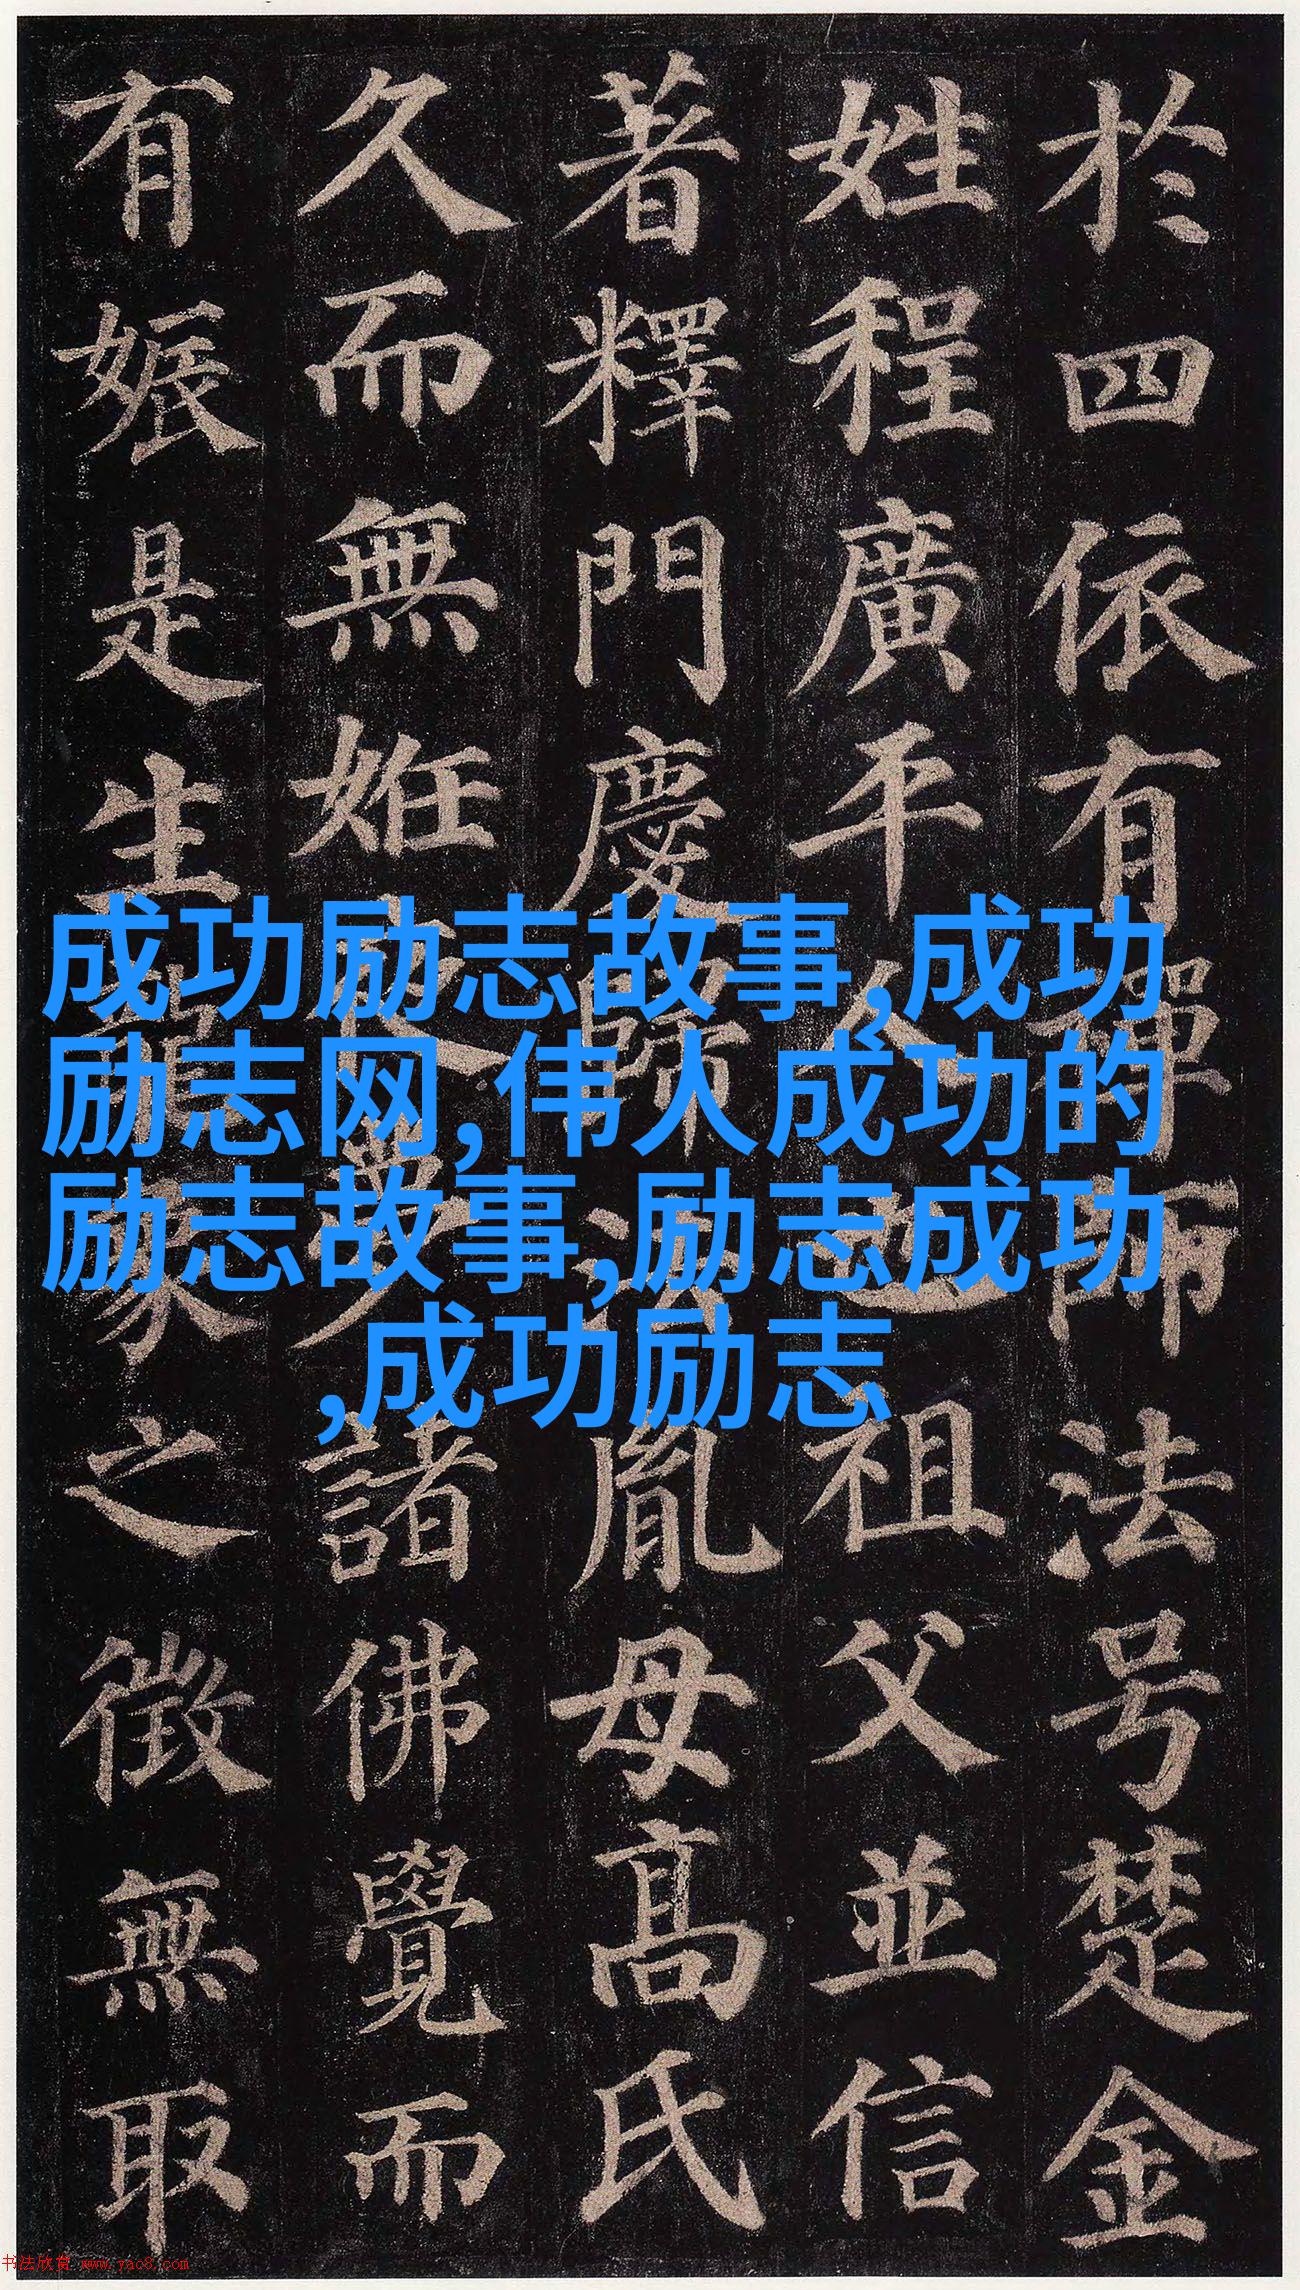 於四依有禪師法号楚金
姓程廣平人也祖父並信
著釋門慶歸法胤母高氏
久而無姙夜夢諸佛覺而
有娠是生龍象之徵無取
成功励志故事,成功
励志网,伟人成功的
励志故事,励志成功
,成功励志
书法欣赏 www.yac8.com